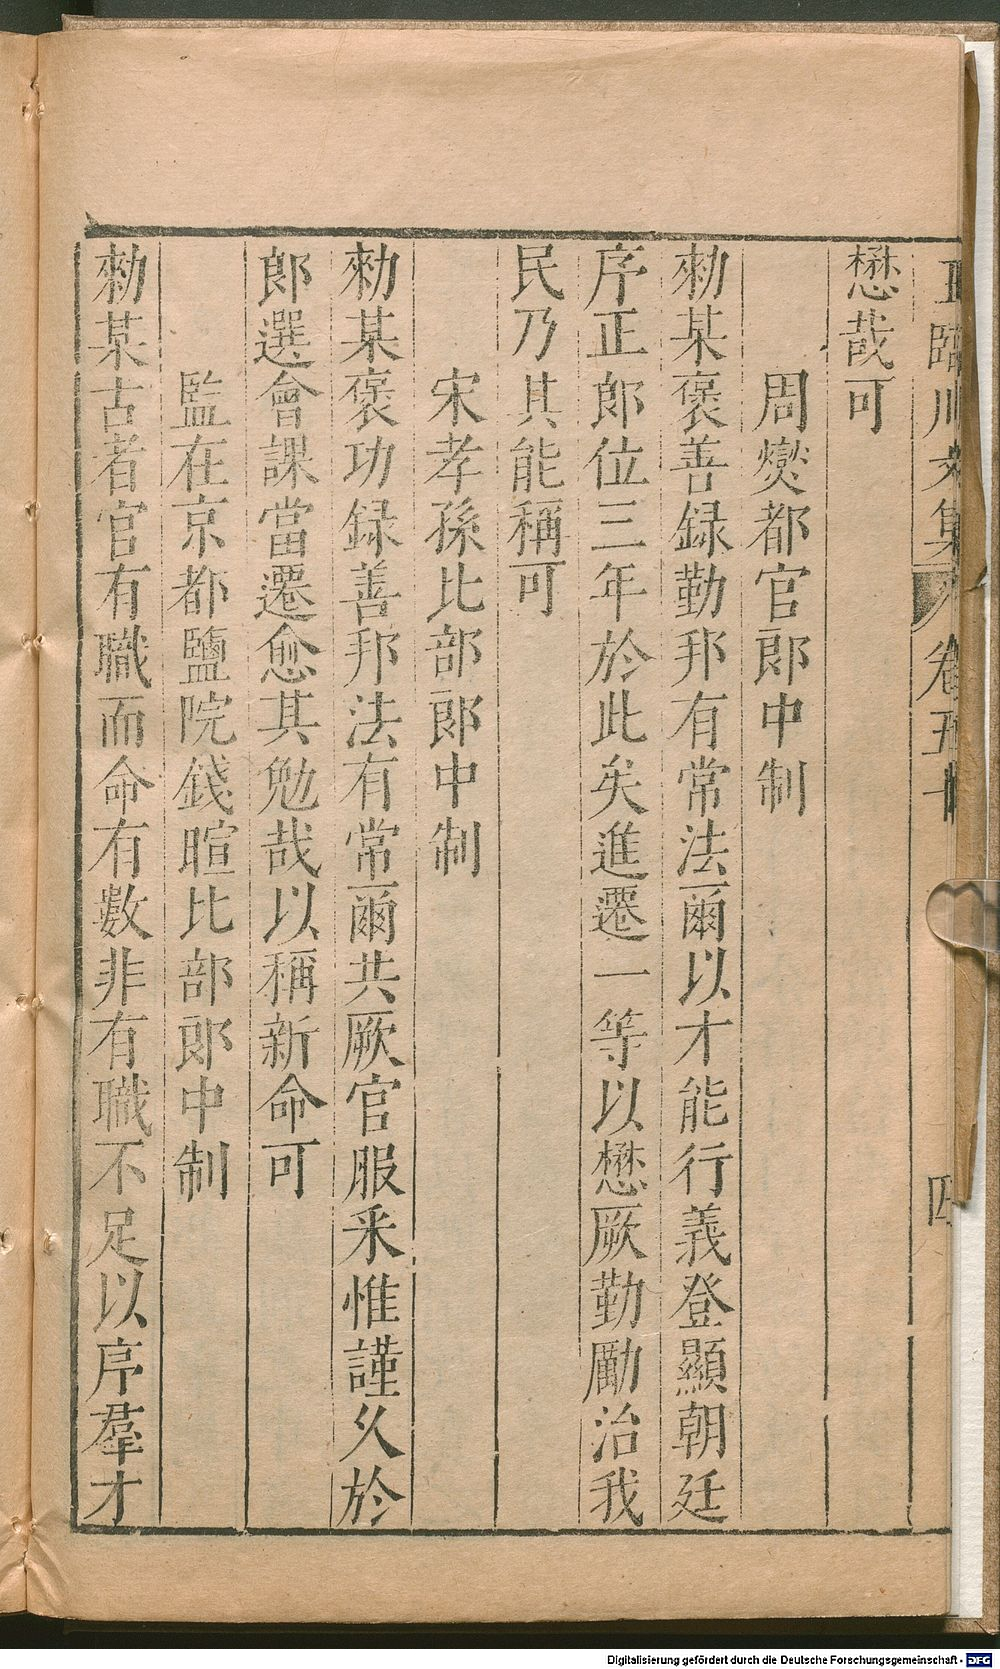 王臨川文集 卷五十 四
懋哉可
周爕都官郎中制
勑某褒善録勤邦有常法爾以才能行義登顯朝廷
序正郎位三年於此矣進遷一等以懋厥勤勵治我
民乃其能稱可
宋孝孫比部郎中制
勑某褒功録善邦法有常爾共厥官服釆惟謹久於
郎選會課當遷愈其勉哉以稱新命可
監在京都鹽院錢暄比部郎中制
勑某古者官有職而命有數非有職不足以序羣才
Digitalisierung gefördert durch die Deutsche Forschungsgemeinschaft - DFG